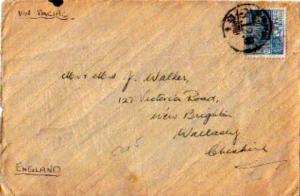 VIA
Mr & Mrs J. Walker,
127 Victoria Road,
New Brighton
Wallasey
Cheshire
ENGLAND